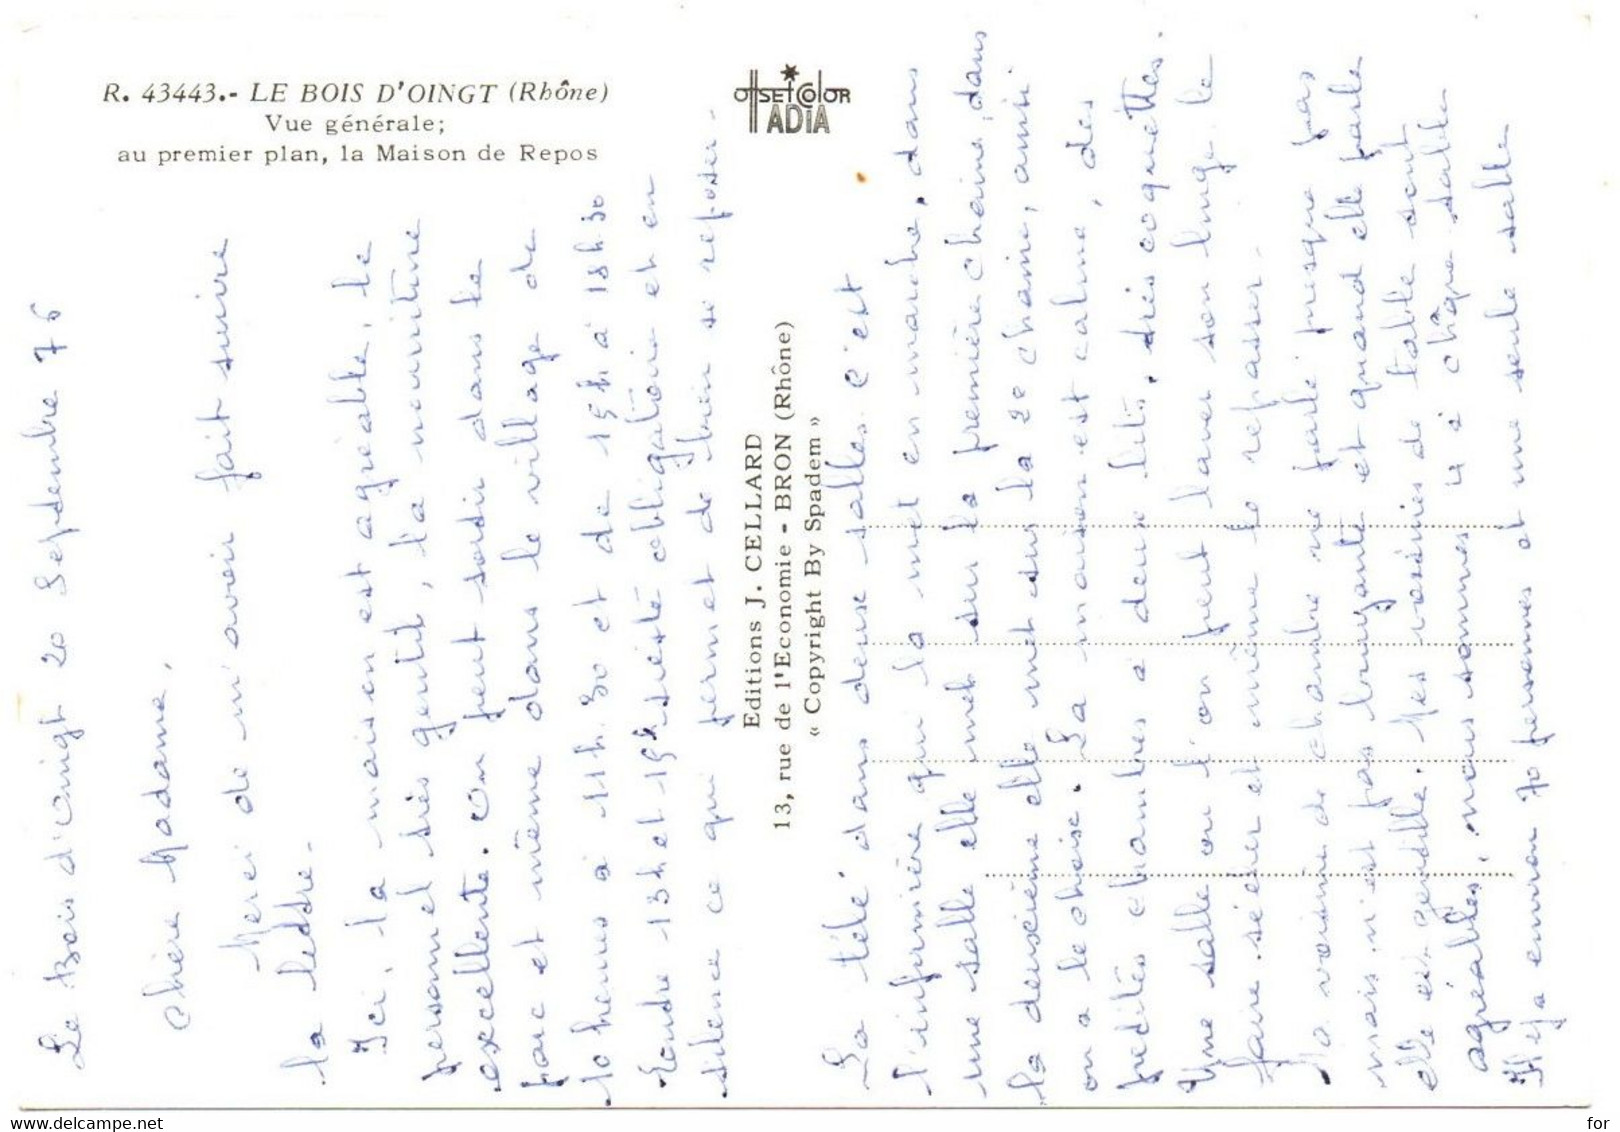 R. 43443.- LE BOIS D'OINGT (Rhône)
Vue générale;
au premier plan, la Maison de Repos
OffSEt COlOR
ADiA
Editions J. CELLARD
13, rue de l'Economie - BRON (Rhône)
« Copyright By Spadem »
Le Bois d'Oingt 20 Septembre 76
Chère Madame,
Merci de m'avoir fait suivre
la lettre.
Ici, la maison est agréable, le
personnel très gentil, la nourriture
excellente. On peut sortir dans le
parc et même dans le village de
10 heures à 11h.30 et de 15h à 18h30
Entre 13h et 15h sieste obligatoire et en
silence ce qui permet de bien se reposer.
La télé dans deux salles. C'est
l'infirmière qui la met en marche, dans
une salle elle met sur la première chaine, dans
la deuxième elle met sur la 2e chaine, ainsi
on a le choix. La maison est calme, des
petites chambres à deux lits, très coquettes.
Une salle ou l'on peut laver son linge le
faire sécher et même le repasser.
Ma voisine de chambre ne parle presque pas
mais n'est pas bruyante et quand elle parle
elle est gentille. Mes voisines de table sont
agréables, nous sommes 4 à chaque table
Il y a environ 70 personnes et une seule salle
for
www.delcampe.net